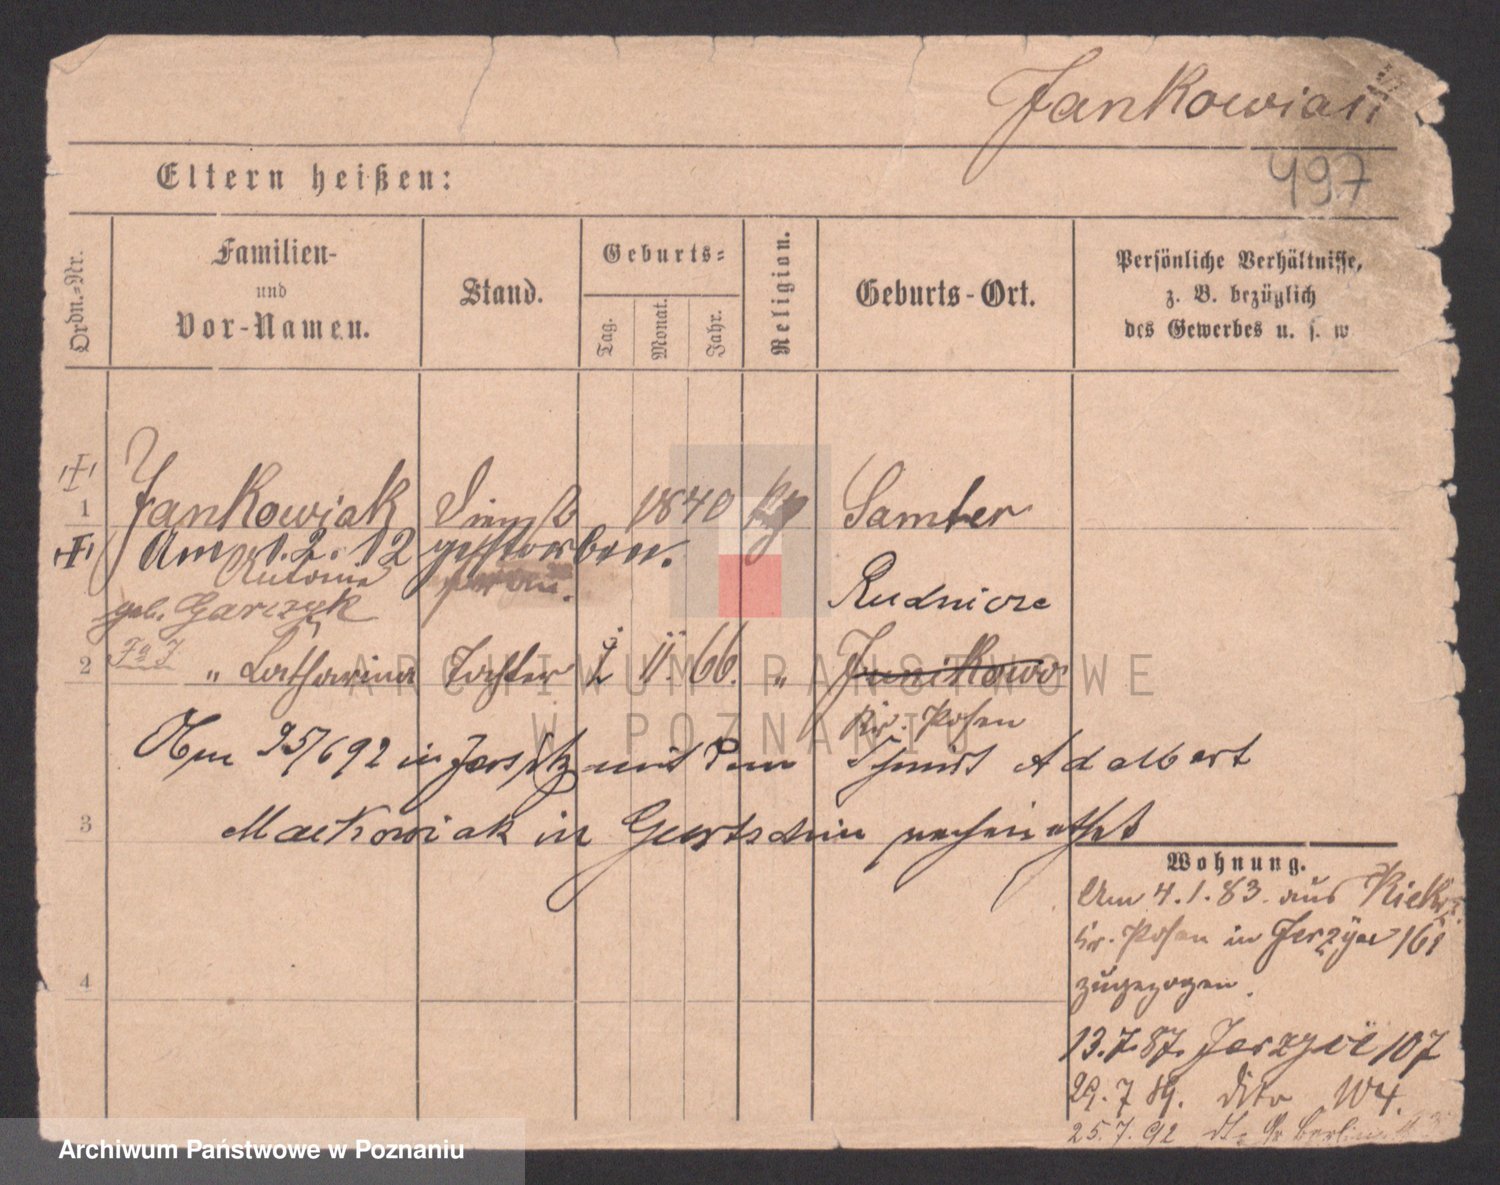 Jankowiak
497
Eltern heißen:
Ordn.-Nr.
Familien-
und
Vor-Namen.
Stand.
Geburts-
Tag.
Monat.
Jahr.
Religion.
Geburts-Ort.
Persönliche Verhältnisse,
z. B. bezüglich
des Gewerbes u. s. w
1 Jankowiak 1840 Samter
Am 1. 2. 12 gestorben.
Antonie
geb. Garczyk
Rudnicze
2 " Catharina Tochter 11. 66. " Junikowo
Kr. Posen
Am 25/6 92 in Jersitz mit dem Adalbert
3 Maćkowiak in Gurtschin verheirathet
Wohnung.
Am 4.1.83. aus Kiekrz
Kr. Posen in Jerzyce 161
zugezogen.
4
13.7.87. Jerzyce 107
29.7.89. dito 104.
25.7.92 Berliner
ARCHIWUM PAŃSTWOWE
W POZNANIU
Archiwum Państwowe w Poznaniu